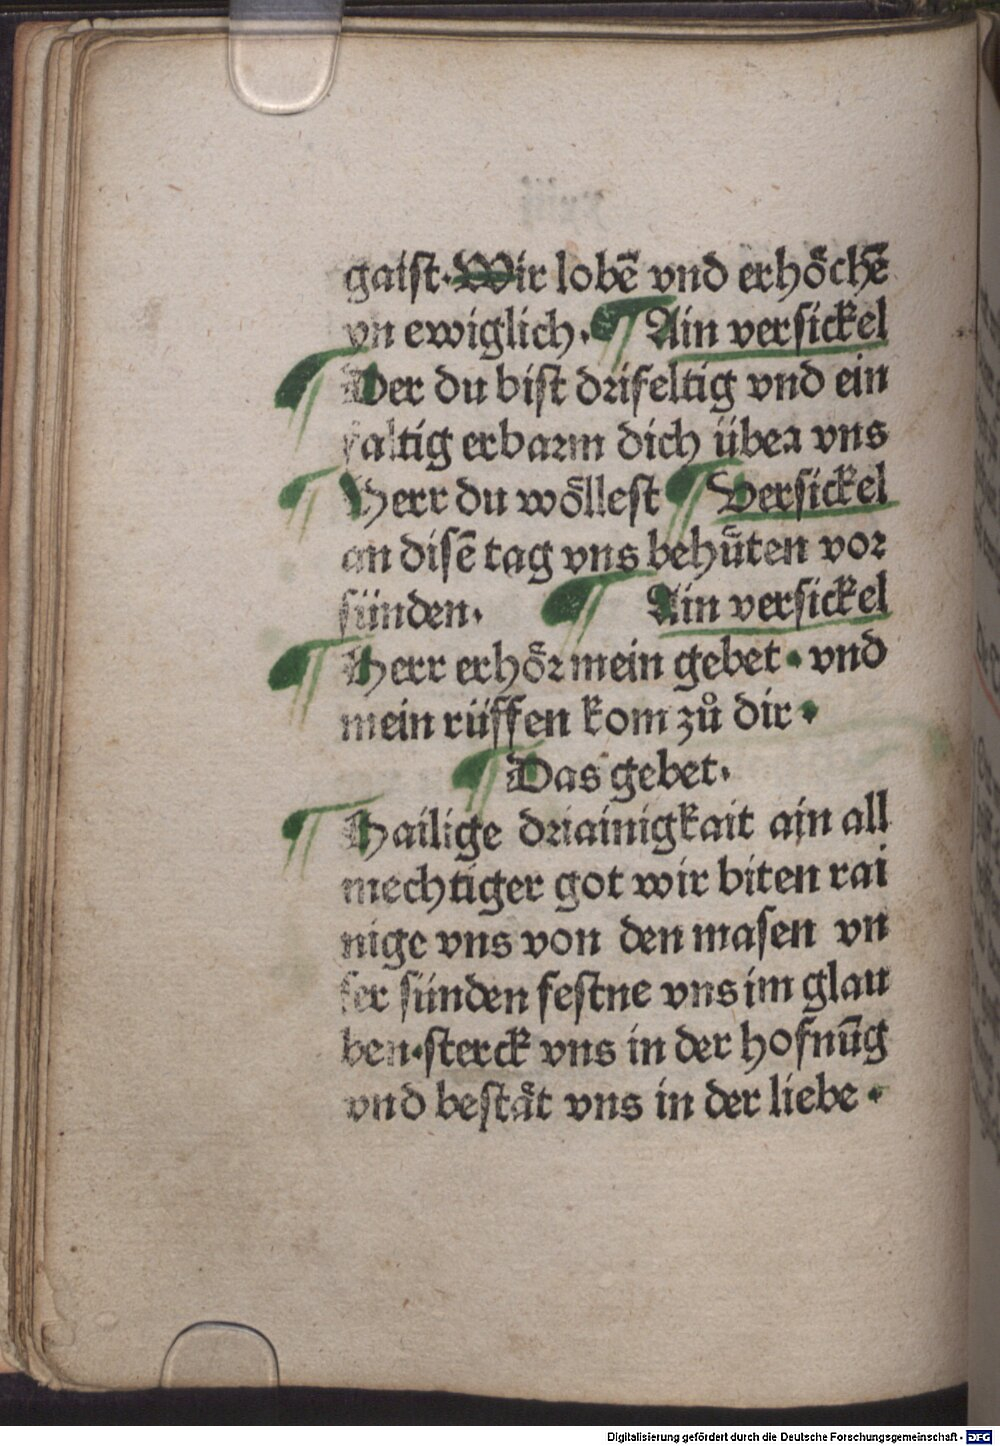 gaist·Wir lobē vnd erhöchē
vn ewiglich. ¶ Ain versickel
¶ Der du bist drifeltig vnd ein
faltig erbarm dich über vns
¶ Herr du wöllest ¶ Versickel
an disē tag vns behüten vor
sünden. ¶ Ain versickel
¶ Herr erhör mein gebet · vnd
mein rüffen kom zů dir ·
¶ Das gebet.
¶ Hailige driainigkait ain all
mechtiger got wir biten rai
nige vns von den masen vn
ser sünden festne vns im glau
ben·sterck vns in der hofnūg
vnd bestät vns in der liebe ·
Digitalisierung gefördert durch die Deutsche Forschungsgemeinschaft - DFG